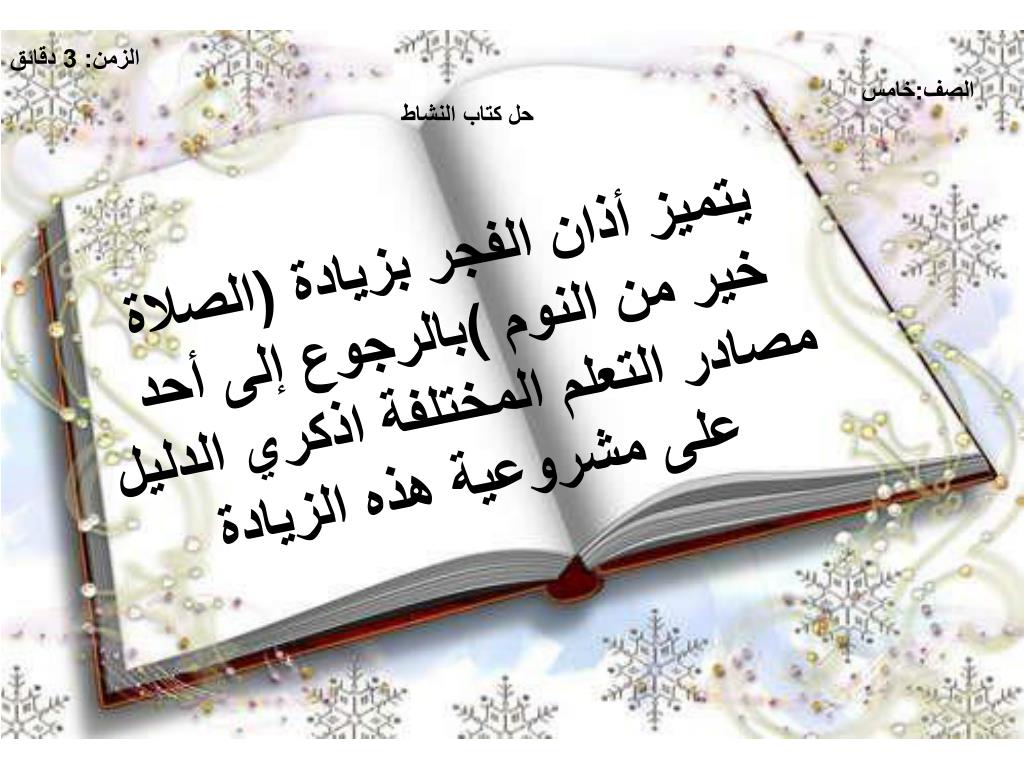 الزمن: 3 دقائق
الصف:خامس
حل كتاب النشاط
يتميز أذان الفجر بزيادة (الصلاة
خير من النوم )بالرجوع إلى أحد
مصادر التعلم المختلفة اذكري الدليل
على مشروعية هذه الزيادة